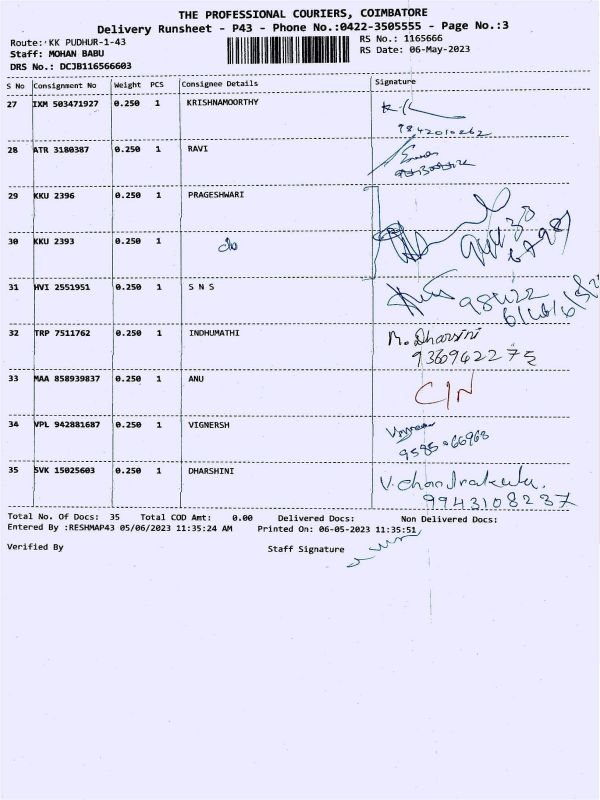 THE PROFESSIONAL COURIERS, COIMBATORE
Delivery Runsheet - P43 - Phone No.:0422-3505555 - Page No.:3
Route: KK PUDHUR-1-43 RS No.: 1165666
Staff: MOHAN BABU RS Date: 06-May-2023
DRS No.: DCJB116566603
S No Consignment No Weight PCS Consignee Details Signature
27 IXM 503471927 0.250 1 KRISHNAMOORTHY
9842010262
28 ATR 3180387 0.250 1 RAVI
29 KKU 2396 0.250 1 PRAGESHWARI
30 KKU 2393 0.250 1 do
31 HVI 2551951 0.250 1 S N S
32 TRP 7511762 0.250 1 INDHUMATHI M. Dharsini
9360942275
33 MAA 858939837 0.250 1 ANU C/N
34 VPL 942881687 0.250 1 VIGNERSH
9585066963
35 SVK 15025603 0.250 1 DHARSHINI V. Chandrakala.
9943108237
Total No. Of Docs: 35 Total COD Amt: 0.00 Delivered Docs: Non Delivered Docs:
Entered By :RESHMAP43 05/06/2023 11:35:24 AM Printed On: 06-05-2023 11:35:51
Verified By Staff Signature